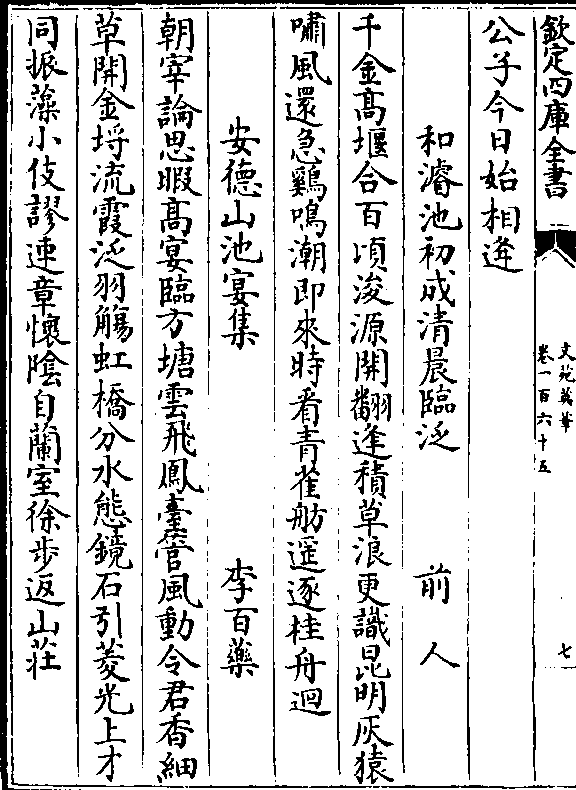 欽定四庫全書
文苑英華
卷一百六十五
七
公子今日始相逢
和濬池初成清晨臨泛 前人
千金高堰合百頃浚源開翻逢積草浪更識昆明灰猿
嘯風還急鷄鳴潮即來時看青雀舫遥逐桂舟迴
安德山池宴集 李百藥
朝宰論思暇高宴臨方塘雲飛鳳臺管風動令君香細
草開金埒流霞泛羽觴虹橋分水態鏡石引菱光上才
同振藻小伎謬連章懷隂自蘭室徐步返山莊